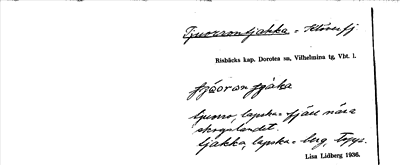 Tjuorsontjakka = Klöverfj
Risbäcks kap. Dorotea sn, Vilhelmina tg, Vbt. l.
tjuoro, lapska = fjäll nära
skogslandet.
tjakka, lapska = berg, topp.
Lisa Lidberg 1936.